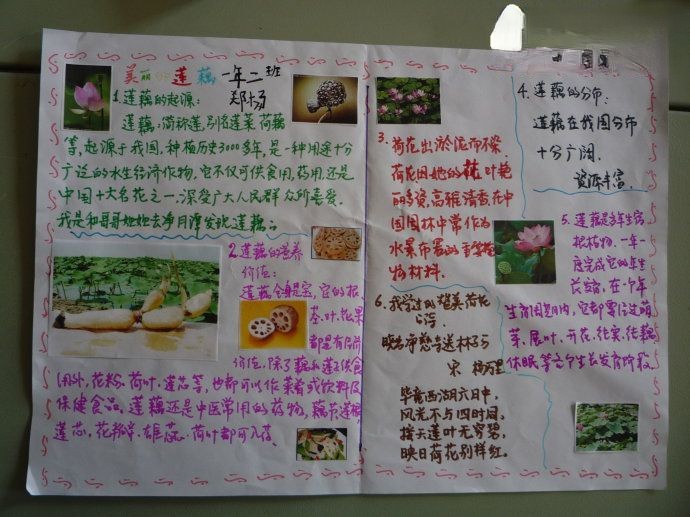 美丽的莲藕 一年二班
郑杨
1.莲藕的起源：
莲藕，简称莲，别名莲菜、荷藕
等，起源于我国，种植历史3000多年，是一种用途十分
广泛的水生经济作物，它不仅可供食用，药用还是
中国十大名花之一，深受广大人民群众所喜爱。
我是和哥哥她她去净月潭发现莲藕。
2.莲藕的营养
价值：
莲藕全身是宝，它的根、
茎、叶、花、果
都是有
价值，除了藕和莲子供食
用外，花粉、荷叶、莲芯等，也都可以作菜肴或饮料及
保健食品。莲藕还是中医常用的药物，藕节、莲根、
莲芯，花瓣、雄蕊、荷叶都可入药。
3.荷花出淤泥而不染，
荷花因她的花叶艳
丽多姿，高雅清香在中
国园林中常作为
水景布景的重要植
物材料。
4.莲藕的分布：
莲藕在我国分布
十分广阔，
资源丰富。
5.莲藕是多年生宿
根植物，一年一
度完成它的年生
长发育，在个年
生育周期内，它都要经过萌
芽、展叶、开花、结实、结藕、
休眠等六个生长发育阶段。
6.我学过的赞美荷花
古诗：
晓出净慈寺送林子方
宋 杨万里
毕竟西湖六月中，
风光不与四时同，
接天莲叶无穷碧，
映日荷花别样红。